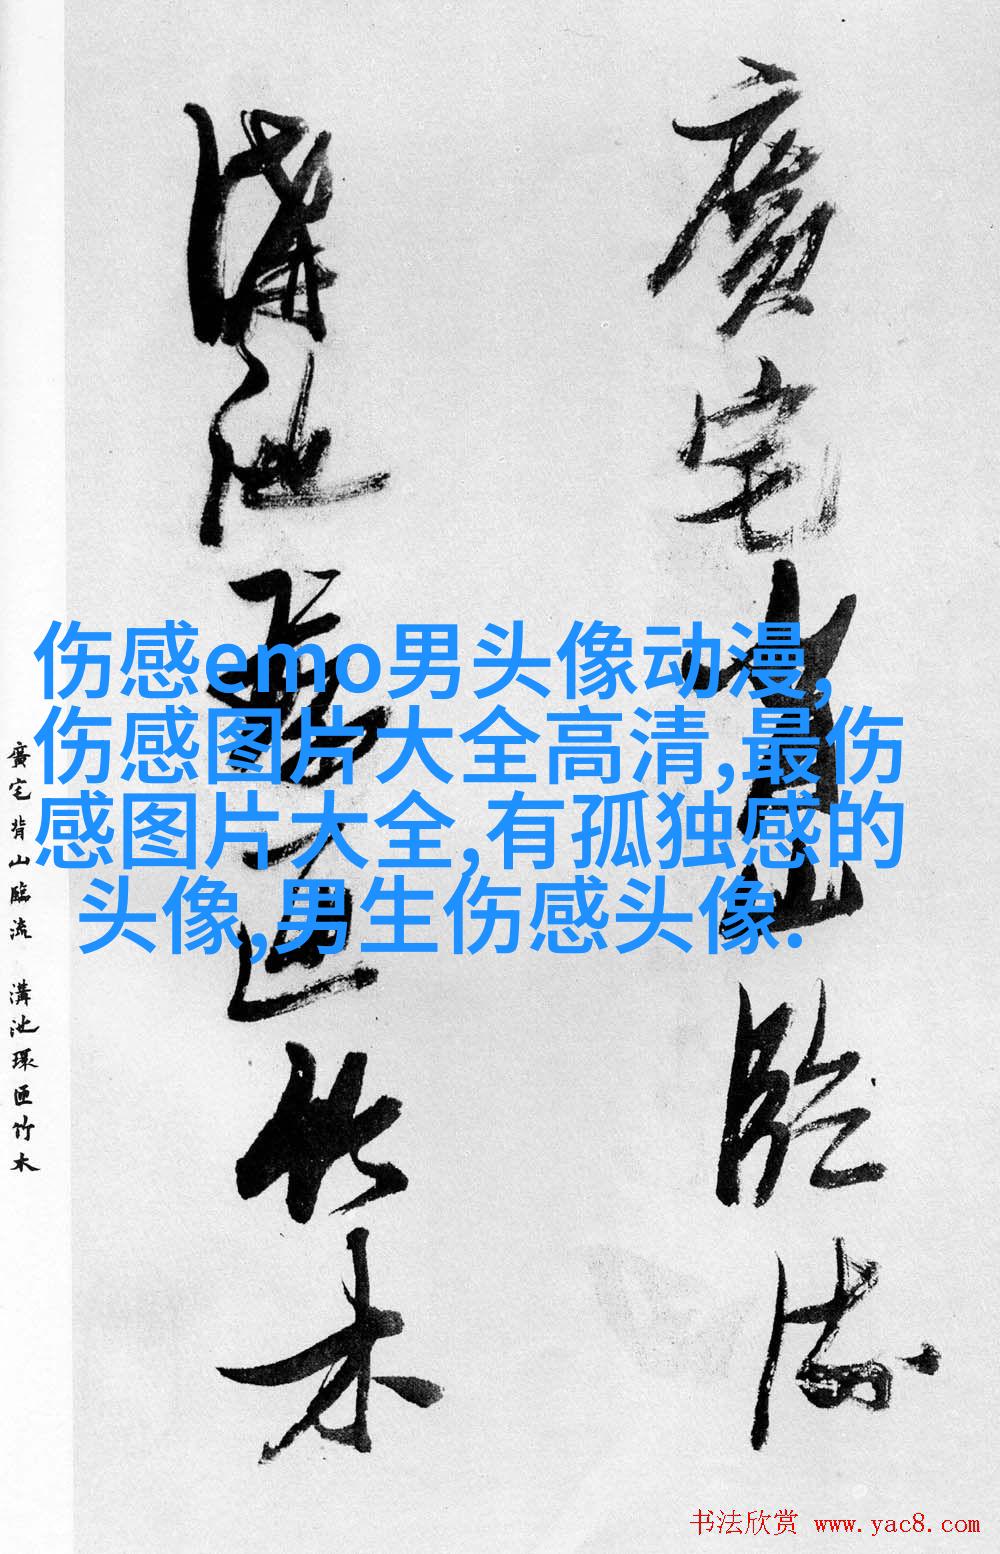 廣宅背山臨流
溝池環匝竹木
伤感emo男头像动漫,
伤感图片大全高清,最伤
感图片大全,有孤独感的
头像,男生伤感头像.
廣宅背山臨流 溝池環匝竹木
书法欣赏 www.yac8.com